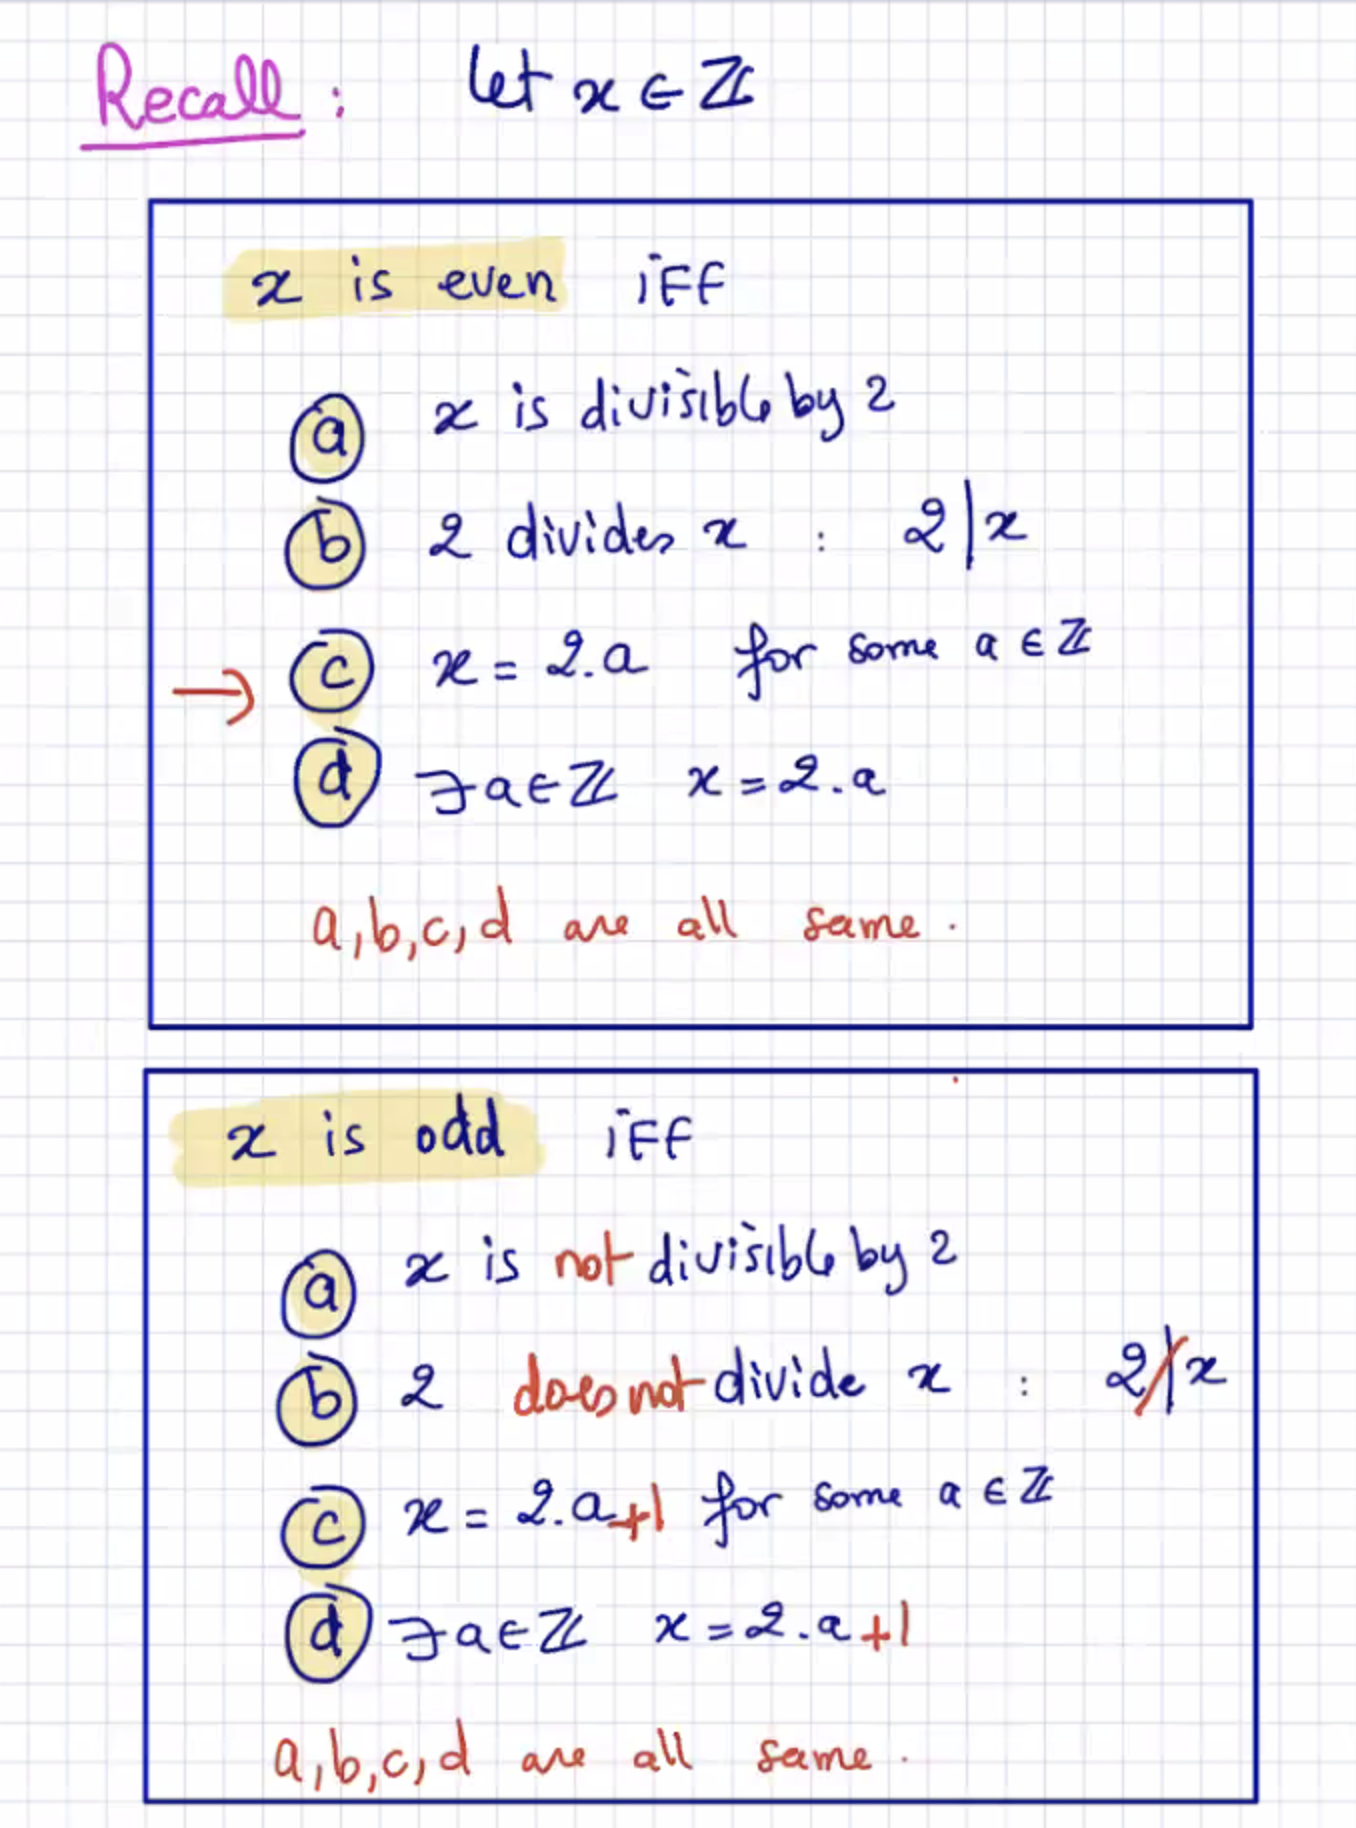 Recall : let x ∈ ℤ
x is even iff
ⓐ x is divisible by 2
ⓑ 2 divides x : 2|x
→ ⓒ x = 2.a for some a ∈ ℤ
ⓓ ∃ a ∈ ℤ x = 2.a
a,b,c,d are all same.
x is odd iff
ⓐ x is not divisible by 2
ⓑ 2 does not divide x : 2∤x
ⓒ x = 2.a+1 for some a ∈ ℤ
ⓓ ∃ a ∈ ℤ x = 2.a+1
a,b,c,d are all same.